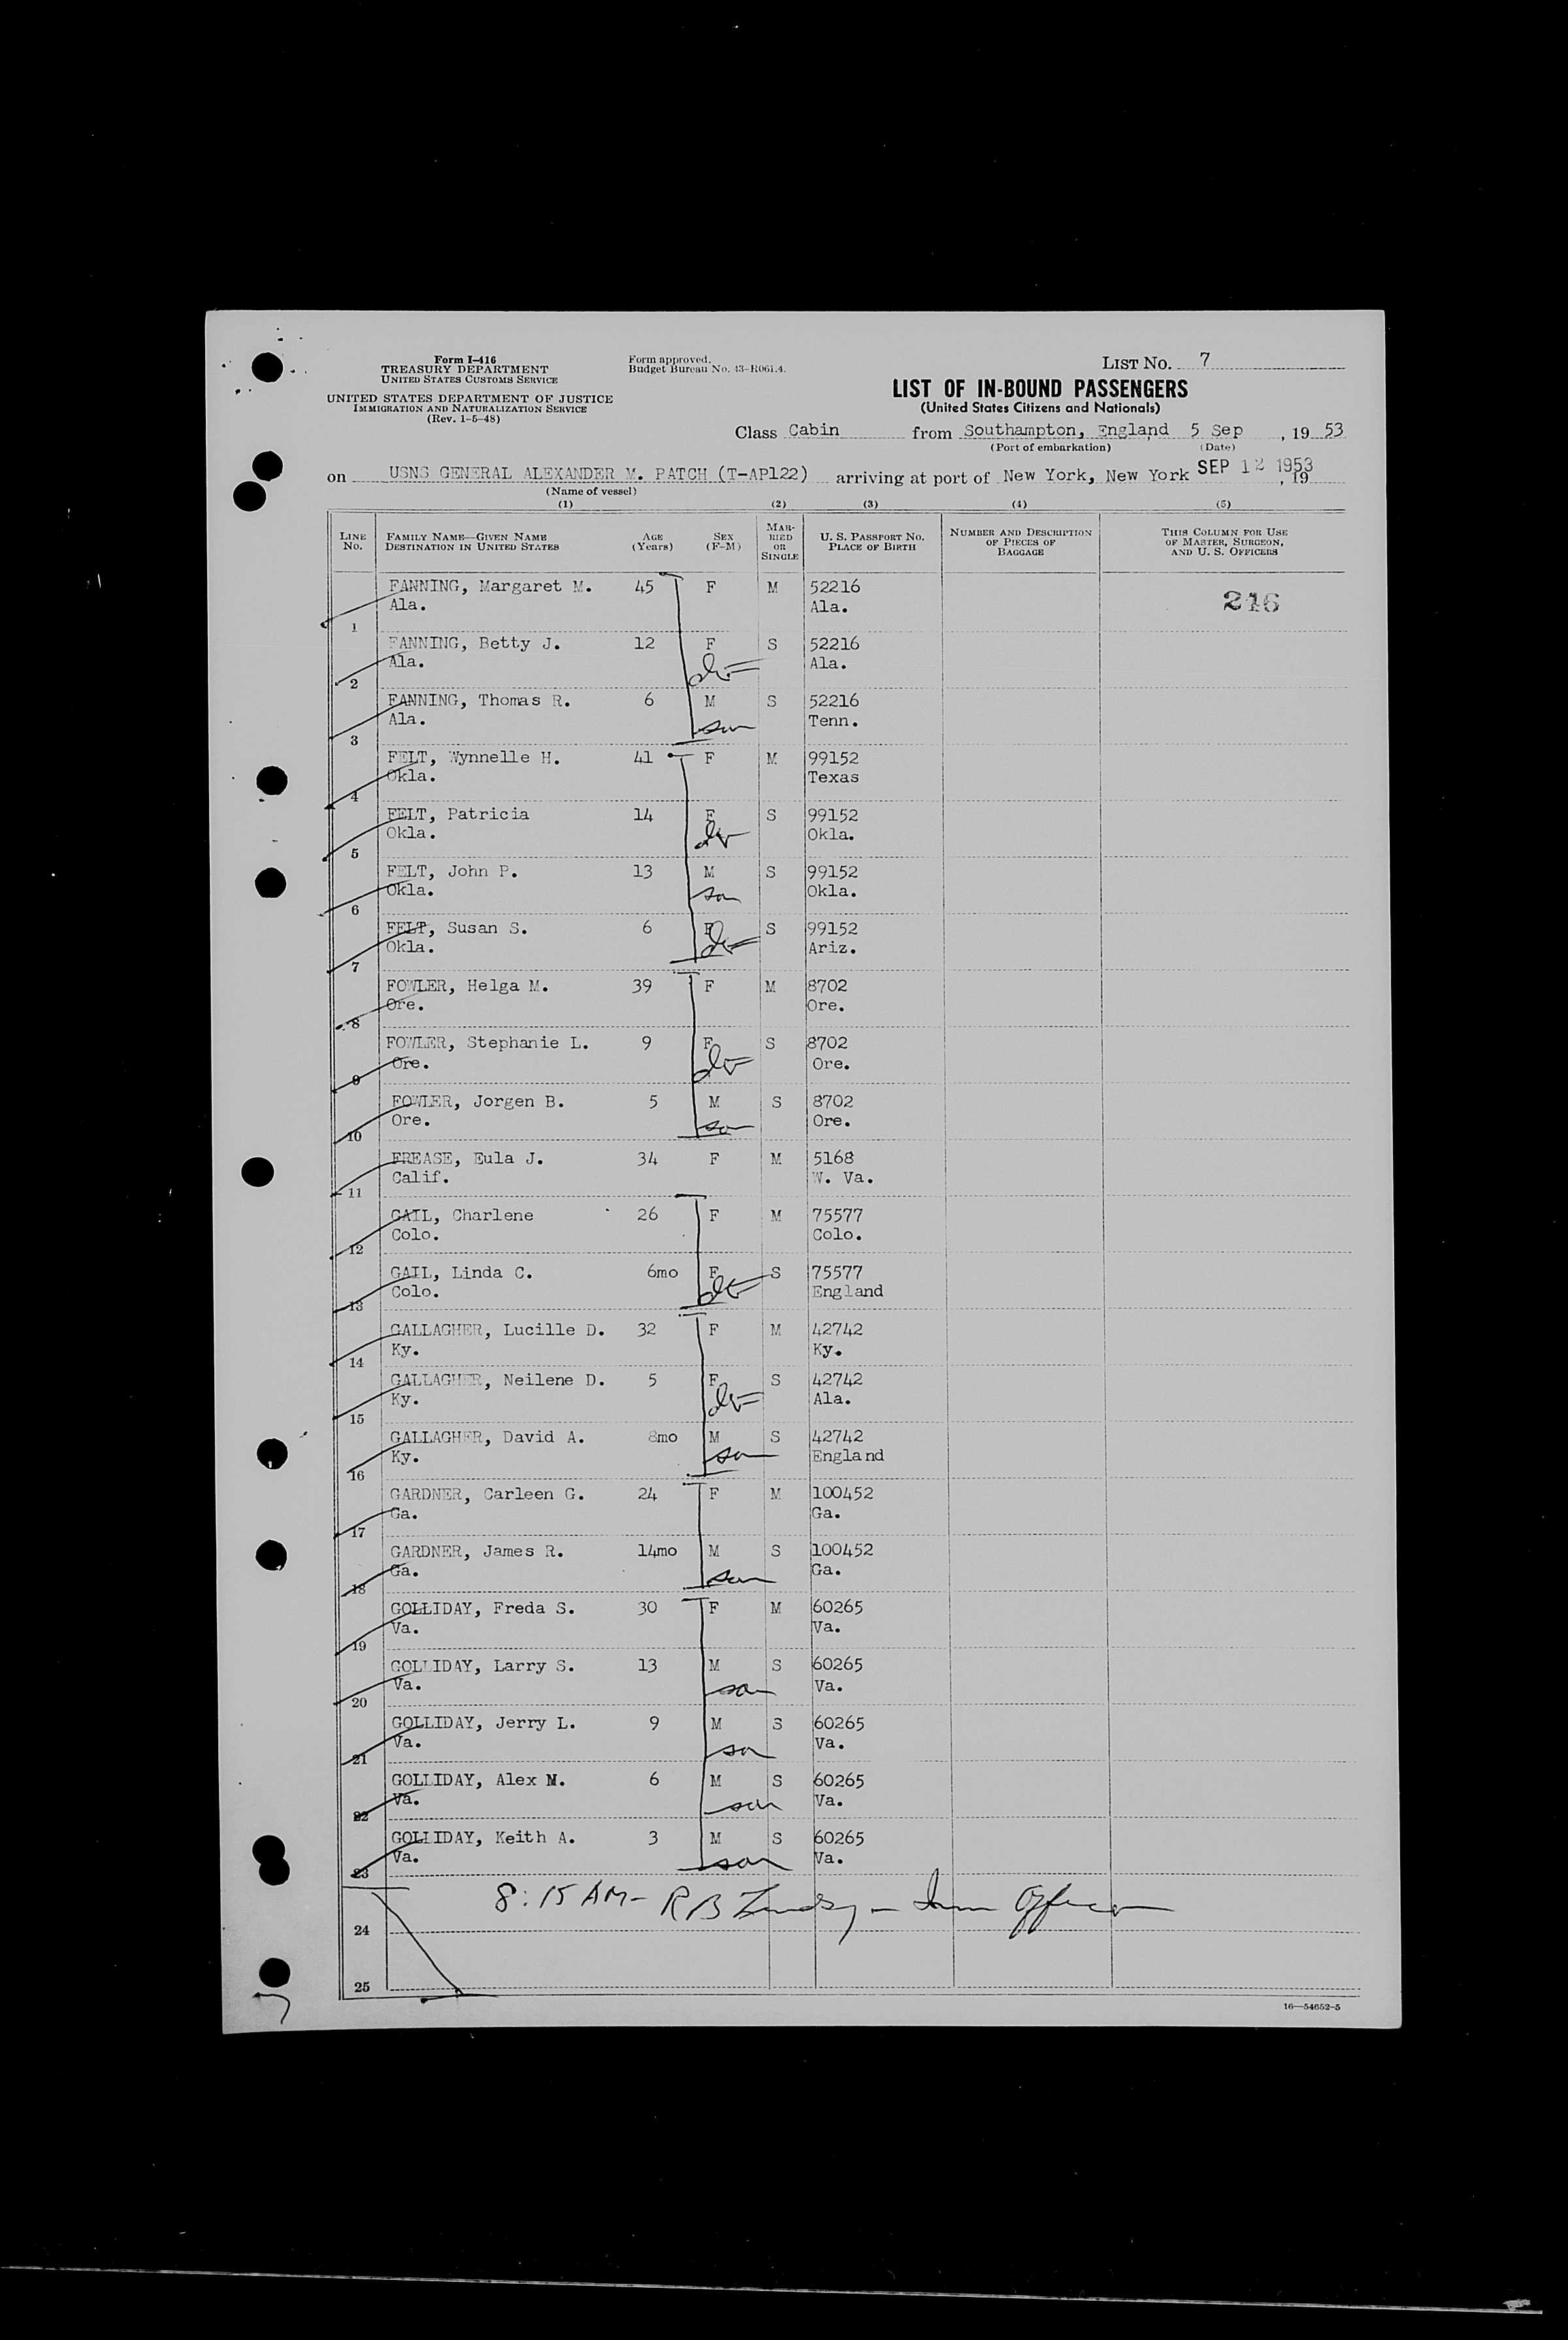 Form I-416
TREASURY DEPARTMENT
UNITED STATES CUSTOMS SERVICE
UNITED STATES DEPARTMENT OF JUSTICE
IMMIGRATION AND NATURALIZATION SERVICE
(Rev. 1-5-48)
Form approved.
Budget Bureau No. 43-R061.4.
LIST NO. 7
LIST OF IN-BOUND PASSENGERS
(United States Citizens and Nationals)
Class Cabin from Southampton, England 5 Sep , 19 53
(Port of embarkation) (Date)
on USNS GENERAL ALEXANDER M. PATCH (T-AP122) arriving at port of New York, New York SEP 12 1953 , 19
(Name of vessel)
(1) (2) (3) (4) (5)
LINE NO. FAMILY NAME—GIVEN NAME DESTINATION IN UNITED STATES AGE (Years) SEX (F-M) MARRIED OR SINGLE U. S. PASSPORT NO. PLACE OF BIRTH NUMBER AND DESCRIPTION OF PIECES OF BAGGAGE THIS COLUMN FOR USE OF MASTER, SURGEON, AND U. S. OFFICERS
FANNING, Margaret M. 45 F M 52216 246
Ala. Ala.
1
FANNING, Betty J. 12 F S 52216
Ala. Ala.
2
FANNING, Thomas R. 6 M S 52216
Ala. son Tenn.
3
FELT, Wynnelle H. 41 F M 99152
Okla. Texas
4
FELT, Patricia 14 F S 99152
Okla. Okla.
5
FELT, John P. 13 M S 99152
Okla. son Okla.
6
FELT, Susan S. 6 F S 99152
Okla. Ariz.
7
FOWLER, Helga M. 39 F M 8702
Ore. Ore.
8
FOWLER, Stephanie L. 9 F S 8702
Ore. Ore.
9
FOWLER, Jorgen B. 5 M S 8702
Ore. son Ore.
10
FREASE, Eula J. 34 F M 5168
Calif. W. Va.
11
GAIL, Charlene 26 F M 75577
Colo. Colo.
12
GAIL, Linda C. 6mo F S 75577
Colo. England
13
GALLAGHER, Lucille D. 32 F M 42742
Ky. Ky.
14
GALLAGHER, Neilene D. 5 F S 42742
Ky. Ala.
15
GALLAGHER, David A. 8mo M S 42742
Ky. son England
16
GARDNER, Carleen G. 24 F M 100452
Ga. Ga.
17
GARDNER, James R. 14mo M S 100452
Ga. son Ga.
18
GOLLIDAY, Freda S. 30 F M 60265
Va. Va.
19
GOLLIDAY, Larry S. 13 M S 60265
Va. son Va.
20
GOLLIDAY, Jerry L. 9 M S 60265
Va. son Va.
21
GOLLIDAY, Alex M. 6 M S 60265
Va. son Va.
22
GOLLIDAY, Keith A. 3 M S 60265
Va. son Va.
23
8:15 AM - R B - Imm Officer
24
25
16—54652-5